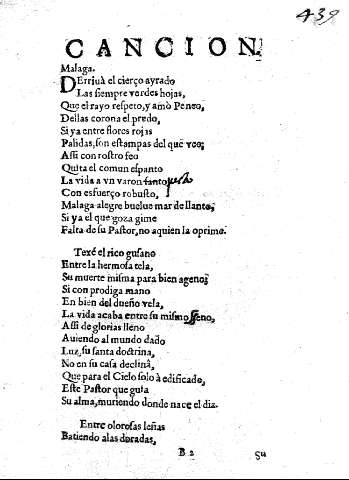 439
CANCION.
Malaga.
DErriuà el cierço ayrado
Las siempre verdes hojas,
Que el rayo respeto, y amò Peneo,
Dellas corona el predo,
Si ya entre flores rojas
Palidas, son estampas del que veo;
Assi con rostro feo
Quita el comun espanto
La vida a vn varon santo justo
Con esfuerço robusto,
Malaga alegre buelue mar de llanto,
Si ya el que goza gime
Falta de su Pastor, no aquien la oprime.
Texé el rico gusano
Entre la hermosa tela,
Su muerte misma para bien ageno;
Si con prodiga mano
En bien del dueño vela,
La vida acaba entre su mismo seno,
Assi de glorias lleno
Auiendo al mundo dado
Luz, su santa doctrina,
No en su casa declinâ,
Que para el Cielo solo à edificado,
Este Pastor que guia
Su alma, muriendo donde nace el dia.
Entre olorosas leñas
Batiendo alas doradas,
B 2 Su